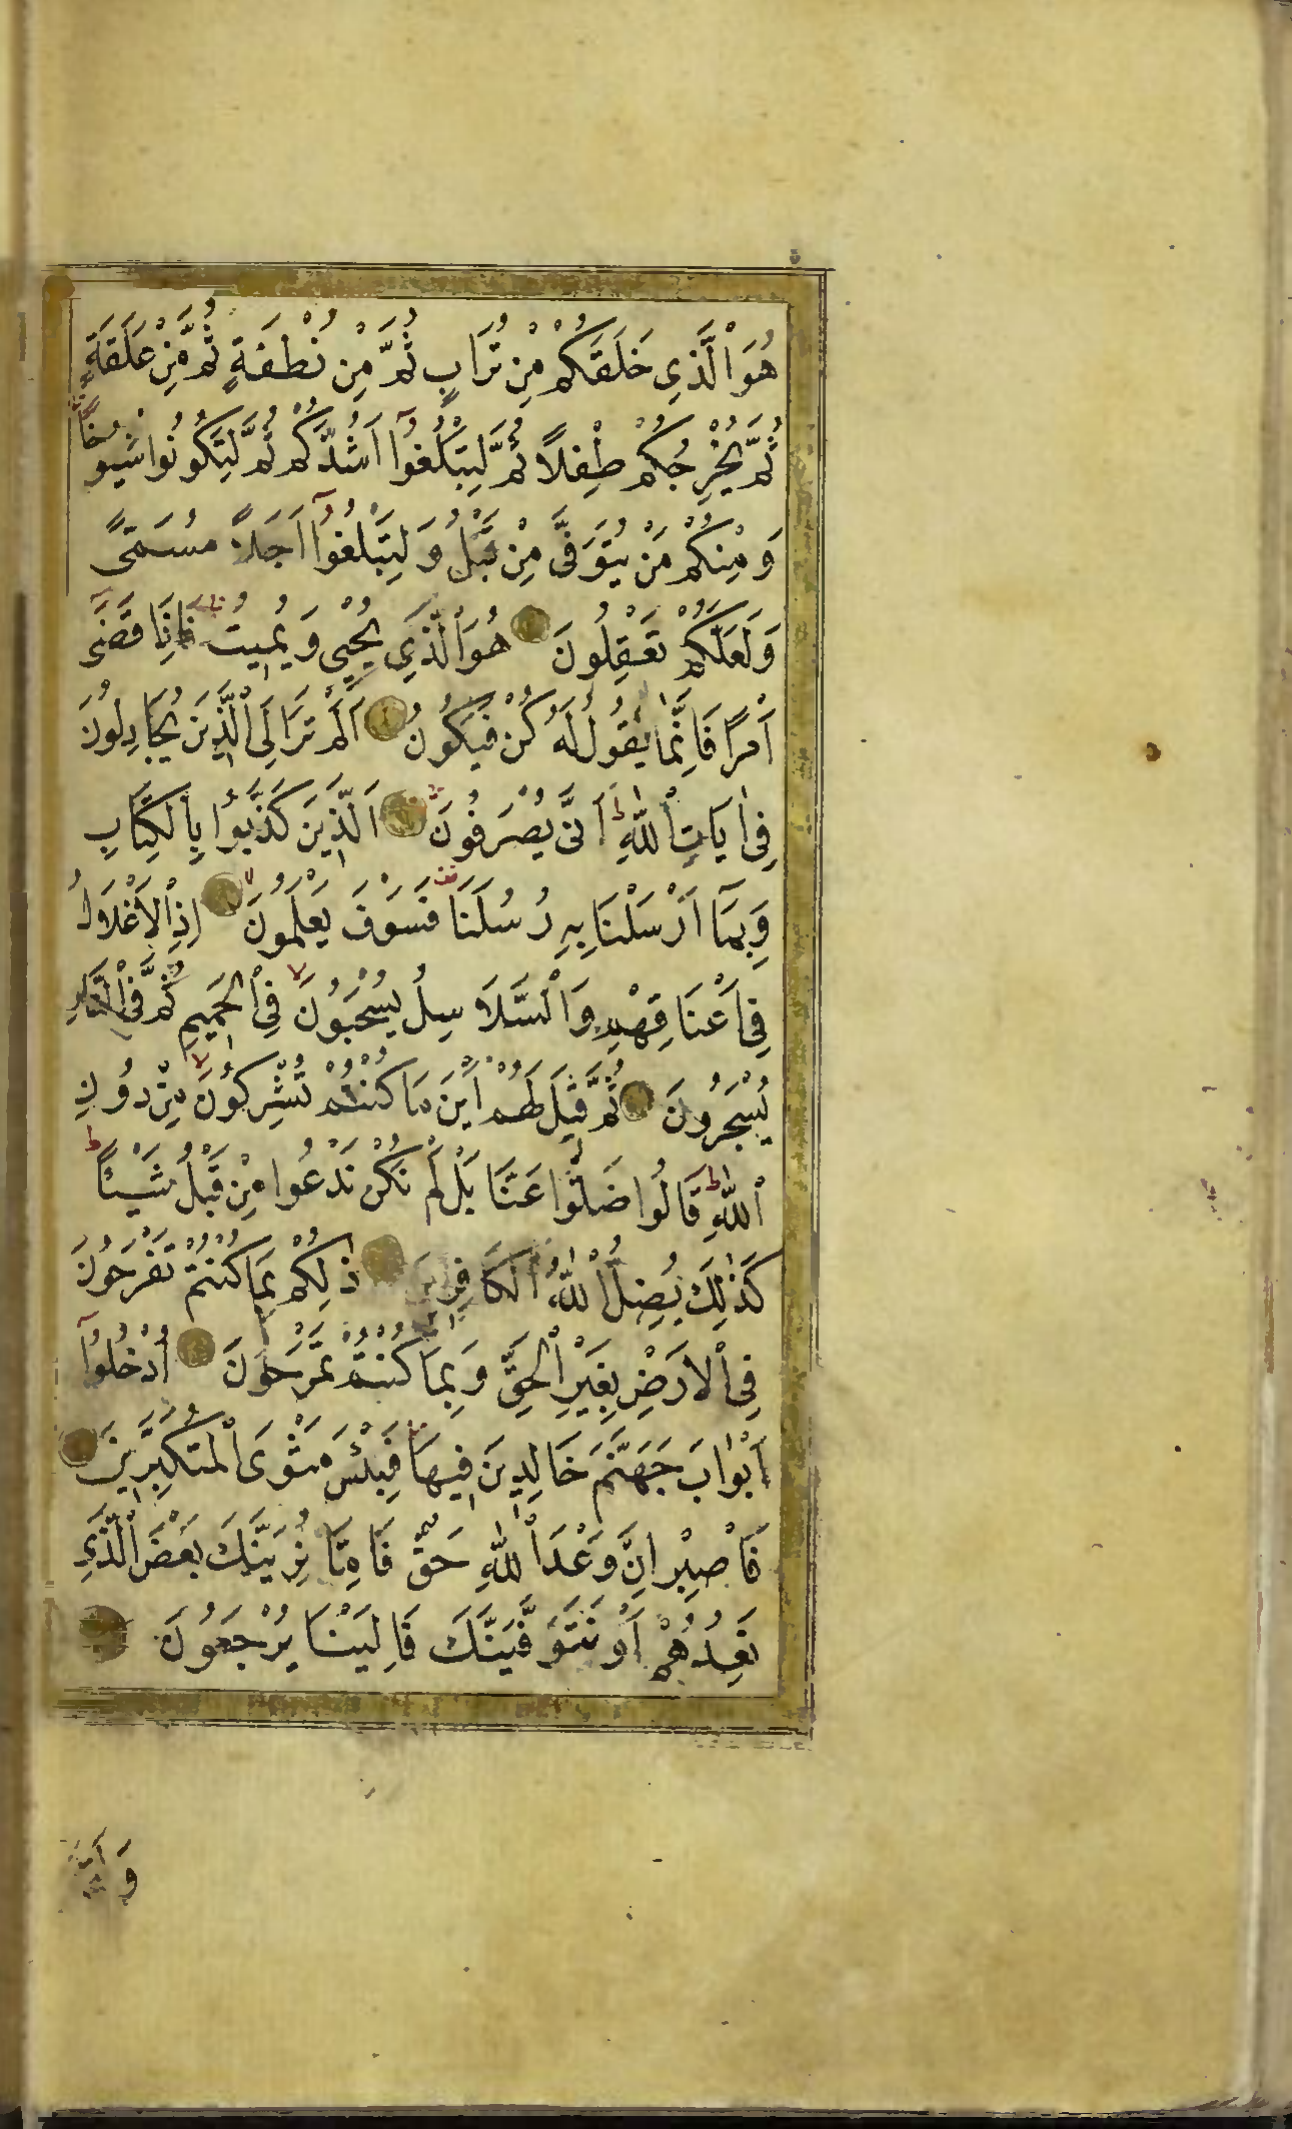 هُوَ الَّذِي خَلَقَكُمْ مِنْ تُرَابٍ ثُمَّ مِنْ نُطْفَةٍ ثُمَّ مِنْ عَلَقَةٍ
ثُمَّ يُخْرِجُكُمْ طِفْلًا ثُمَّ لِتَبْلُغُوٓا اَشُدَّكُمْ ثُمَّ لِتَكُونُوا شُيُوخًا
وَمِنْكُمْ مَنْ يُتَوَفّٰى مِنْ قَبْلُ وَلِتَبْلُغُوٓا اَجَلًا مُسَمًّى
وَلَعَلَّكُمْ تَعْقِلُونَ هُوَ الَّذِي يُحْيِي وَيُمِيتُ فَاِذَا قَضٰى
اَمْرًا فَاِنَّمَا يَقُولُ لَهُ كُنْ فَيَكُونُ اَلَمْ تَرَ اِلَى الَّذِينَ يُجَادِلُونَ
فِي اٰيَاتِ اللّٰهِ اَنّٰى يُصْرَفُونَ اَلَّذِينَ كَذَّبُوا بِالْكِتَابِ
وَبِمَٓا اَرْسَلْنَا بِهِ رُسُلَنَا فَسَوْفَ يَعْلَمُونَ اِذِ الْاَغْلَالُ
فِي اَعْنَاقِهِمْ وَالسَّلَاسِلُ يُسْحَبُونَ فِي الْحَمِيمِ ثُمَّ فِي النَّارِ
يُسْجَرُونَ ثُمَّ قِيلَ لَهُمْ اَيْنَ مَا كُنْتُمْ تُشْرِكُونَ مِنْ دُونِ
اللّٰهِ قَالُوا ضَلُّوا عَنَّا بَلْ لَمْ نَكُنْ نَدْعُوا مِنْ قَبْلُ شَيْئًا
كَذٰلِكَ يُضِلُّ اللّٰهُ الْكَافِرِينَ ذٰلِكُمْ بِمَا كُنْتُمْ تَفْرَحُونَ
فِي الْاَرْضِ بِغَيْرِ الْحَقِّ وَبِمَا كُنْتُمْ تَمْرَحُونَ اُدْخُلُوٓا
اَبْوَابَ جَهَنَّمَ خَالِدِينَ فِيهَا فَبِئْسَ مَثْوَى الْمُتَكَبِّرِينَ
فَاصْبِرْ اِنَّ وَعْدَ اللّٰهِ حَقٌّ فَاِمَّا نُرِيَنَّكَ بَعْضَ الَّذِي
نَعِدُهُمْ اَوْ نَتَوَفَّيَنَّكَ فَاِلَيْنَا يُرْجَعُونَ